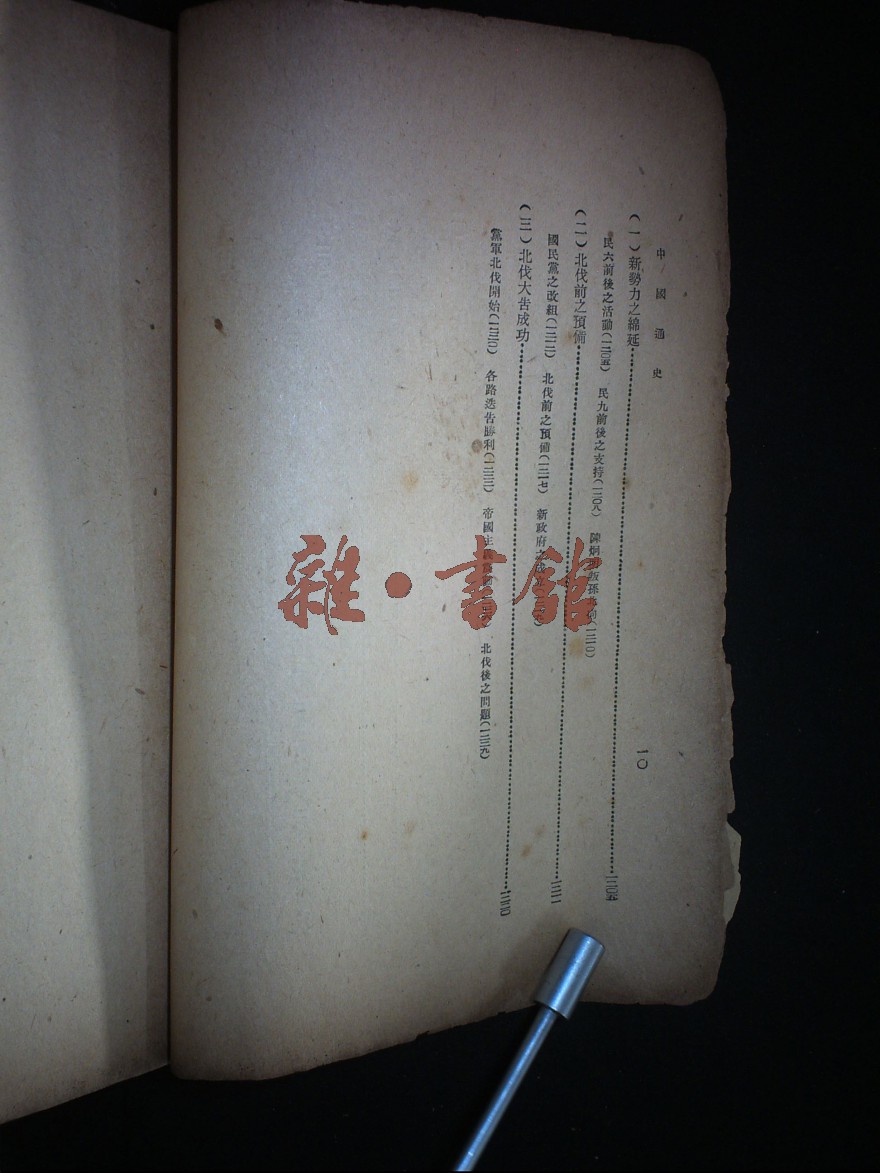 中國通史
一〇
（一）新勢力之綿延……一二〇五
民六前後之活動（一二〇五） 民九前後之支持（一二〇八） 陳炯
（二）北伐前之預備……一二一一
國民黨之改組（一二一二） 北伐前之預備（一二一七） 新政府之成立
（三）北伐大告成功……一二三〇
黨軍北伐開始（一二三〇） 各路迭告勝利（一二三三） 帝國主 北伐後之問題（一二三九）
雜·書館